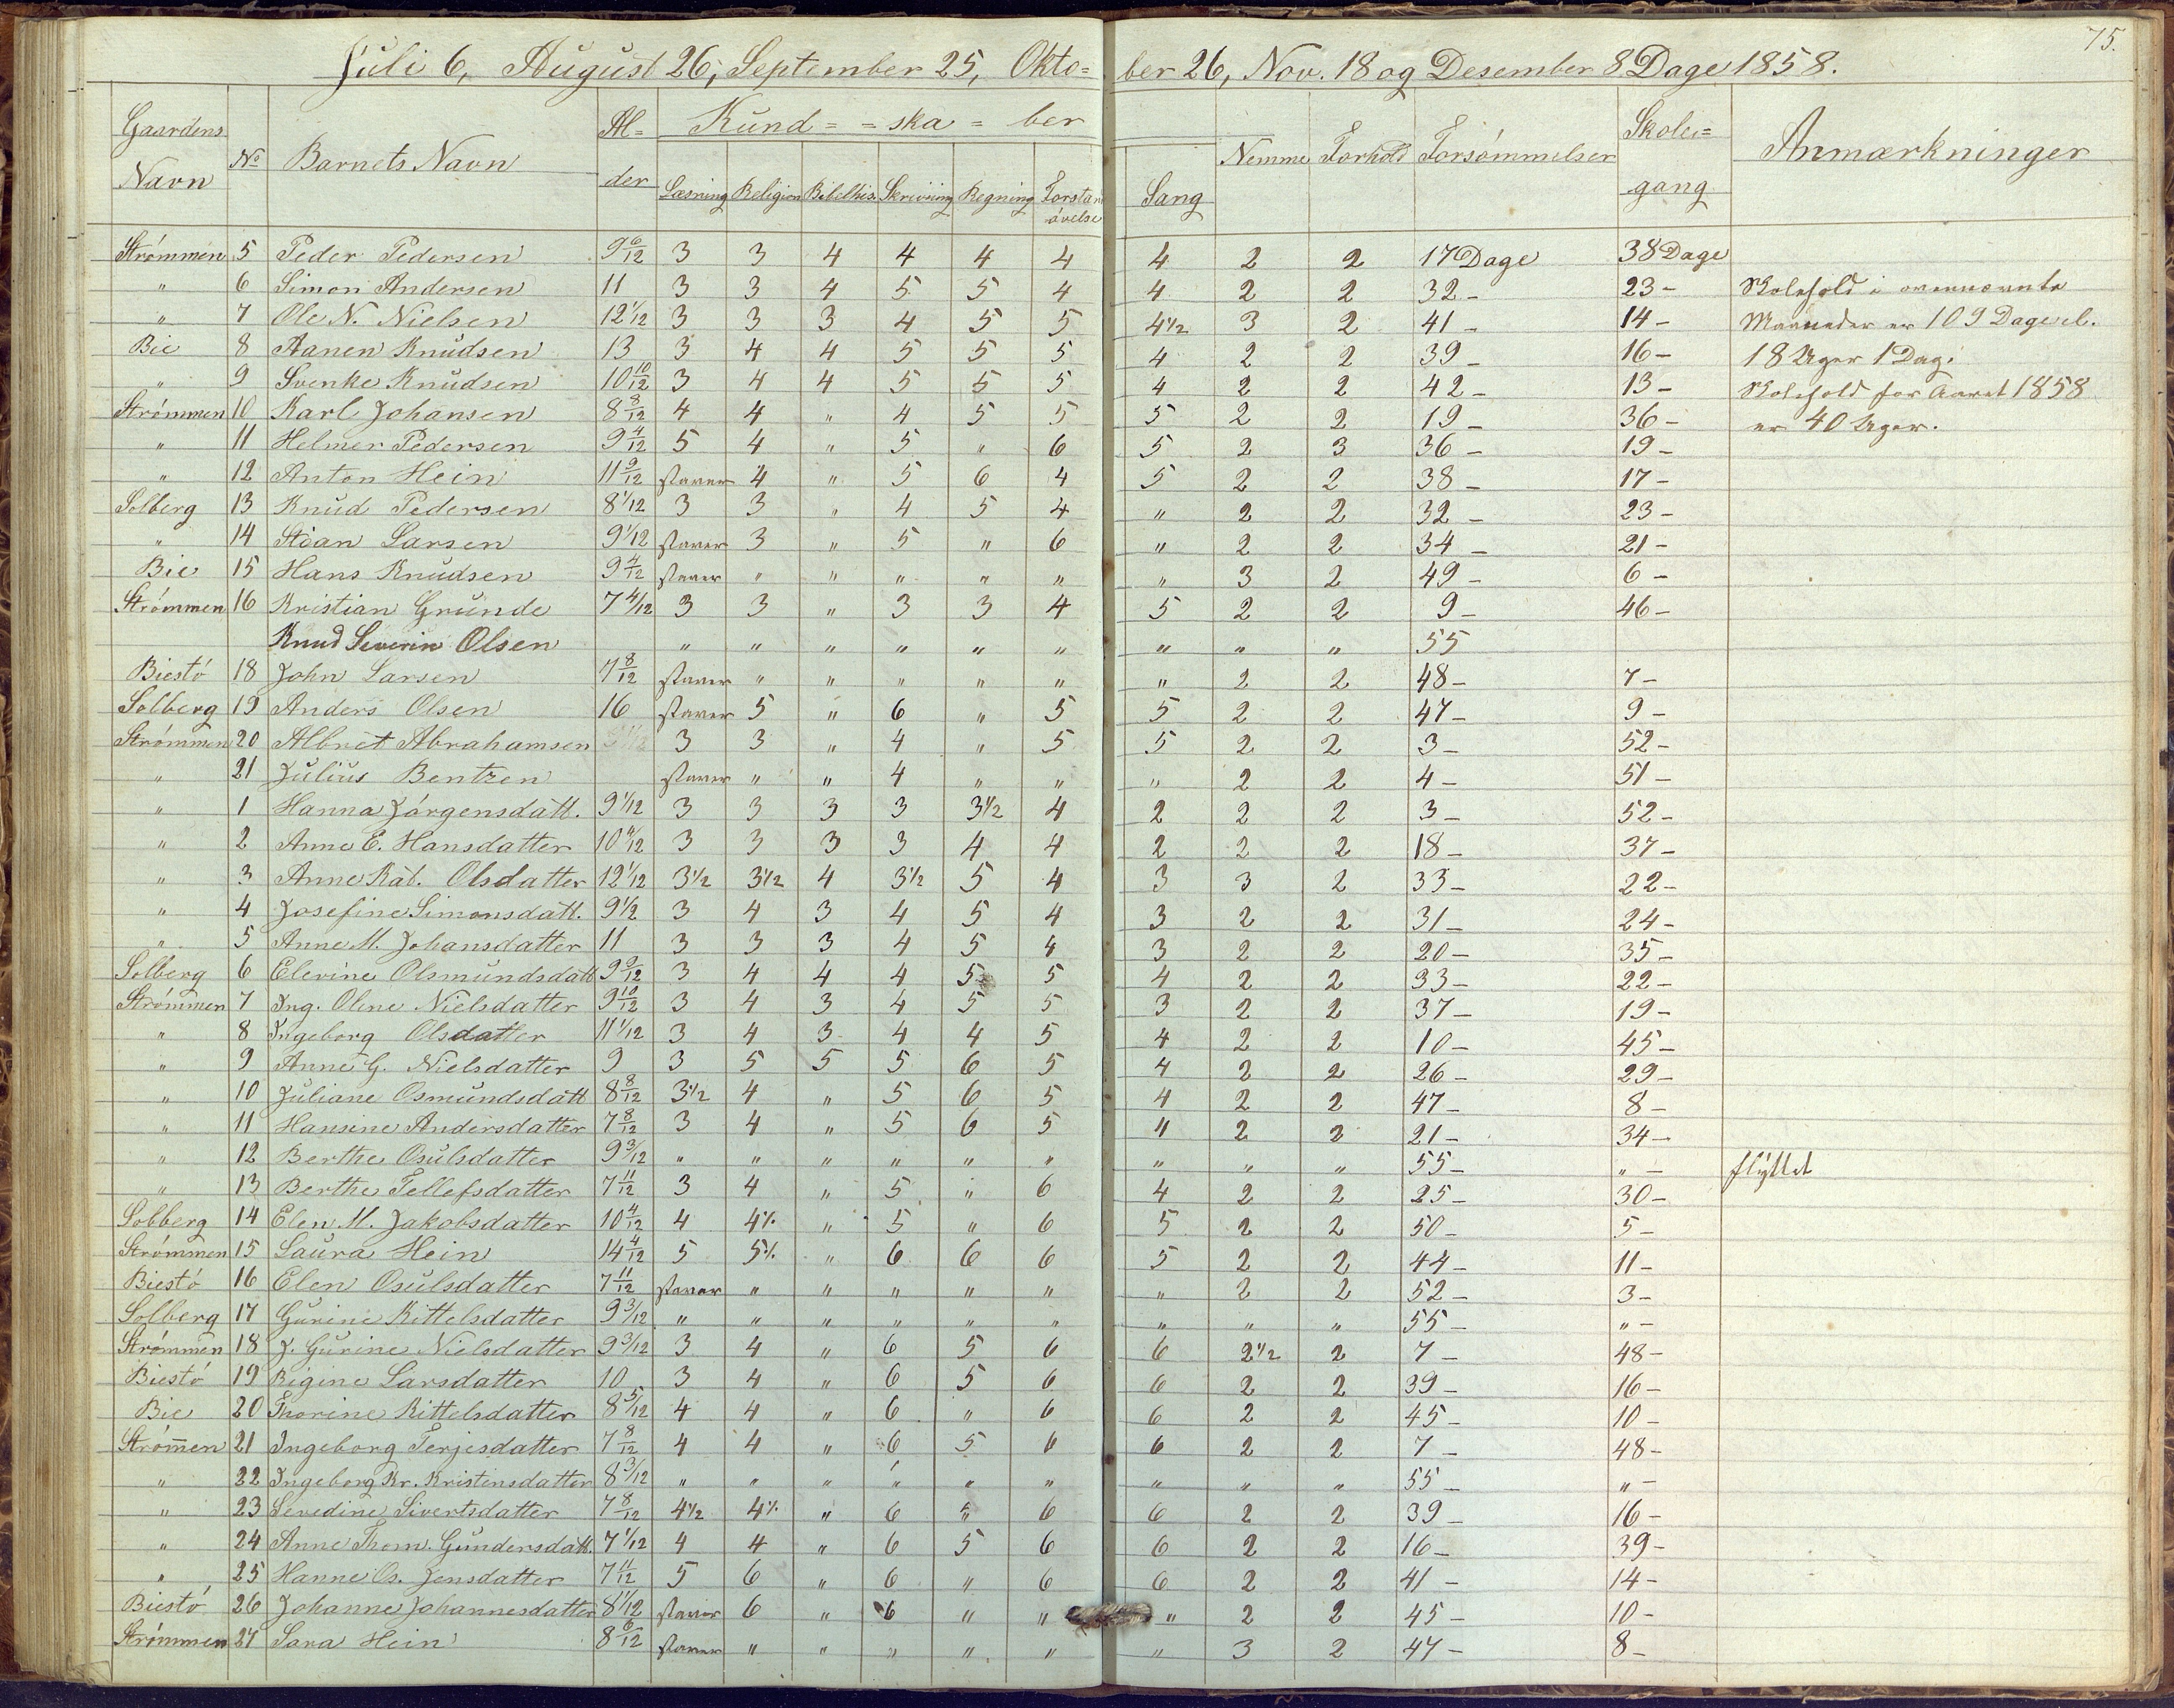 75.
Juli 6, August 26, September 25, Okto= ber 26, Nov. 18 og Desember 8 Dage 1858.
Gaardens Navn No Barnets Navn Al= der Kund= =ska= ber Læsning Religion Bibelhis. Skrivning Regning Forstan øvelse Sang Nemme Forhold Forsømmelser Skole= gang Anmærkninger
Strømmen 5 Peder Pedersen 9 6/12 3 3 4 4 4 4 4 2 2 17 Dage 38 Dage
" 6 Simon Andersen 11 3 3 4 5 5 4 4 2 2 32 - 23 - Skolehold i ovennævnte
" 7 Ole N. Nielsen 12 1/12 3 3 3 4 5 5 4 1/2 3 2 41 - 14 - Maaneder er 109 Dage el.
Bie 8 Aanen Knudsen 13 3 4 4 5 5 5 4 2 2 39 - 16 - 18 Uger 1 Dag.
" 9 Svenke Knudsen 10 10/12 3 4 4 5 5 5 4 2 2 42 - 13 - Skolehold for Aaret 1858
Strømmen 10 Karl Johansen 8 8/12 4 4 " 4 5 5 5 2 2 19 - 36 - er 40 Uger.
" 11 Helmer Pedersen 9 4/12 5 4 " 5 " 6 5 2 3 36 - 19 -
" 12 Anton Hein 11 9/12 staver 4 " 5 6 4 5 2 2 38 - 17 -
Solberg 13 Knud Pedersen 8 1/12 3 3 " 4 5 4 " 2 2 32 - 23 -
" 14 Stian Larsen 9 1/12 staver 3 " 5 " 6 " 2 2 34 - 21 -
Bie 15 Hans Knudsen 9 4/12 staver " " " " " " 3 2 49 - 6 -
Strømmen 16 Kristian Grunde 7 4/12 3 3 " 3 3 4 5 2 2 9 - 46 -
Knud Severin Olsen " " " " " " " " " 55
Biestø 18 John Larsen 7 8/12 staver " " " " " " 2 2 48 - 7 -
Solberg 19 Anders Olsen 16 staver 5 " 6 " 5 5 2 2 47 - 9 -
Strømmen 20 Albret Abrahamsen 3 3 " 4 " 5 5 2 2 3 - 52 -
" 21 Julius Bentzen staver " " 4 " " " 2 2 4 - 51 -
" 1 Hanna Jørgensdatt. 9 1/12 3 3 3 3 3 1/2 4 2 2 2 3 - 52 -
" 2 Anne E. Hansdatter 10 4/12 3 3 3 3 4 4 2 2 2 18 - 37 -
" 3 Anne Kat. Olsdatter 12 1/12 3 1/2 3 1/2 4 3 1/2 5 4 3 3 2 33 - 22 -
" 4 Josefine Simonsdatt. 9 1/2 3 4 3 4 5 4 3 2 2 31 - 24 -
" 5 Anne M. Johansdatter 11 3 3 3 4 5 4 3 2 2 20 - 35 -
Solberg 6 Elevine Olsmundsdatt 9 9/12 3 4 4 4 5 5 4 2 2 33 - 22 -
Strømmen 7 Ing. Oline Nielsdatter 9 10/12 3 4 3 4 5 5 3 2 2 37 - 19 -
" 8 Ingeborg Olsdatter 11 1/12 3 4 3 4 4 5 4 2 2 10 - 45 -
" 9 Anne G. Nielsdatter 9 3 5 5 5 6 5 4 2 2 26 - 29 -
" 10 Juliane Osmundsdatt 8 8/12 3 1/2 4 " 5 6 5 4 2 2 47 - 8 -
" 11 Hansine Andersdatter 7 8/12 3 4 " 5 6 5 4 2 2 21 - 34 -
" 12 Berthe Osulsdatter 9 3/12 " " " " " " " " " 55 - " - flyttet
" 13 Berthe Tellefsdatter 7 11/12 3 4 " 5 " 6 4 2 2 25 - 30 -
Solberg 14 Elen M. Jakobsdatter 10 4/12 4 4 1/2 " 5 " 6 5 2 2 50 - 5 -
Strømmen 15 Laura Hein 14 4/12 5 5 1/2 " 6 6 6 5 2 2 44 - 11 -
Biestø 16 Elen Osulsdatter 7 11/12 staver " " " " " " 2 2 52 - 3 -
Solberg 17 Gurine Kittelsdatter 9 3/12 " " " " " " " " " 55 - " -
Strømmen 18 J. Gurine Nielsdatter 9 3/12 3 4 " 6 5 6 6 2 1/2 2 7 - 48 -
Biestø 19 Rigine Larsdatter 10 3 4 " 6 5 6 6 2 2 39 - 16 -
Bie 20 Thorine Kittelsdatter 8 5/12 4 4 " 6 " 6 6 2 2 45 - 10 -
Strømen 21 Ingeborg Terjesdatter 7 8/12 4 4 " 6 5 6 6 2 2 7 - 48 -
" 22 Ingeborg Kr. Kristensdatter 8 3/12 " " " " " " " " " 55 - " -
" 23 Sevedine Sivertsdatter 7 8/12 4 1/2 4 1/2 " 6 5 6 6 2 2 39 - 16 -
" 24 Anne Thom. Gundersdatt. 7 1/12 4 4 " 6 5 6 6 2 2 16 - 39 -
" 25 Hanne Os. Jensdatter 7 11/12 5 6 " 6 " 6 6 2 2 41 - 14 -
Biestø 26 Johanne Johannesdatter 8 1/12 staver 6 " 6 " " " 2 2 45 - 10 -
Strømmen 27 Sara Hein 8 6/12 staver " " " " " " 3 2 47 - 8 -